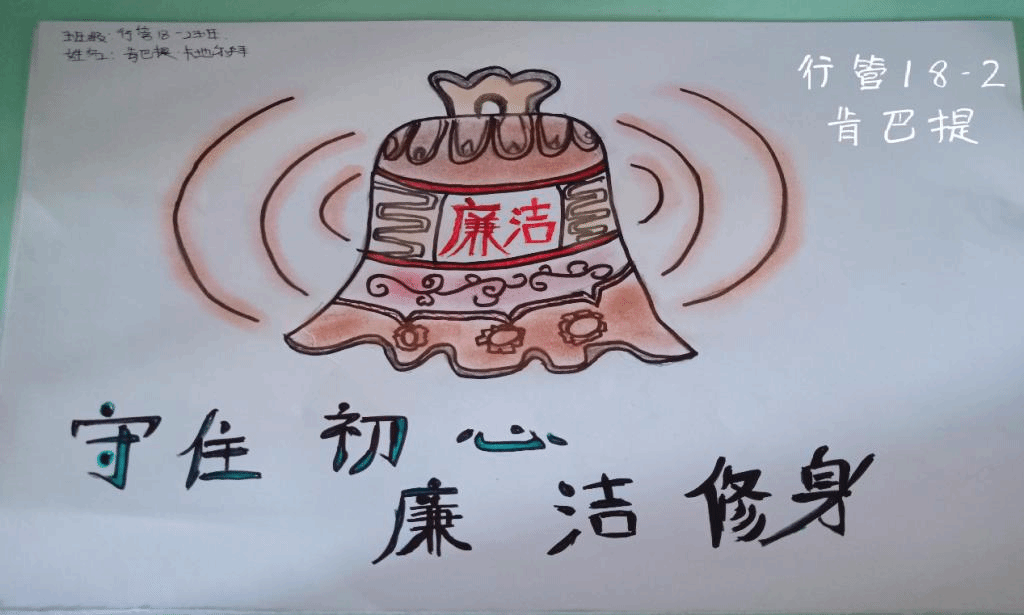 班级:行管18-2班.
姓名:肯巴提·卡地尔拜
行管18-2
肯巴提
廉洁
守住初心
廉洁修身